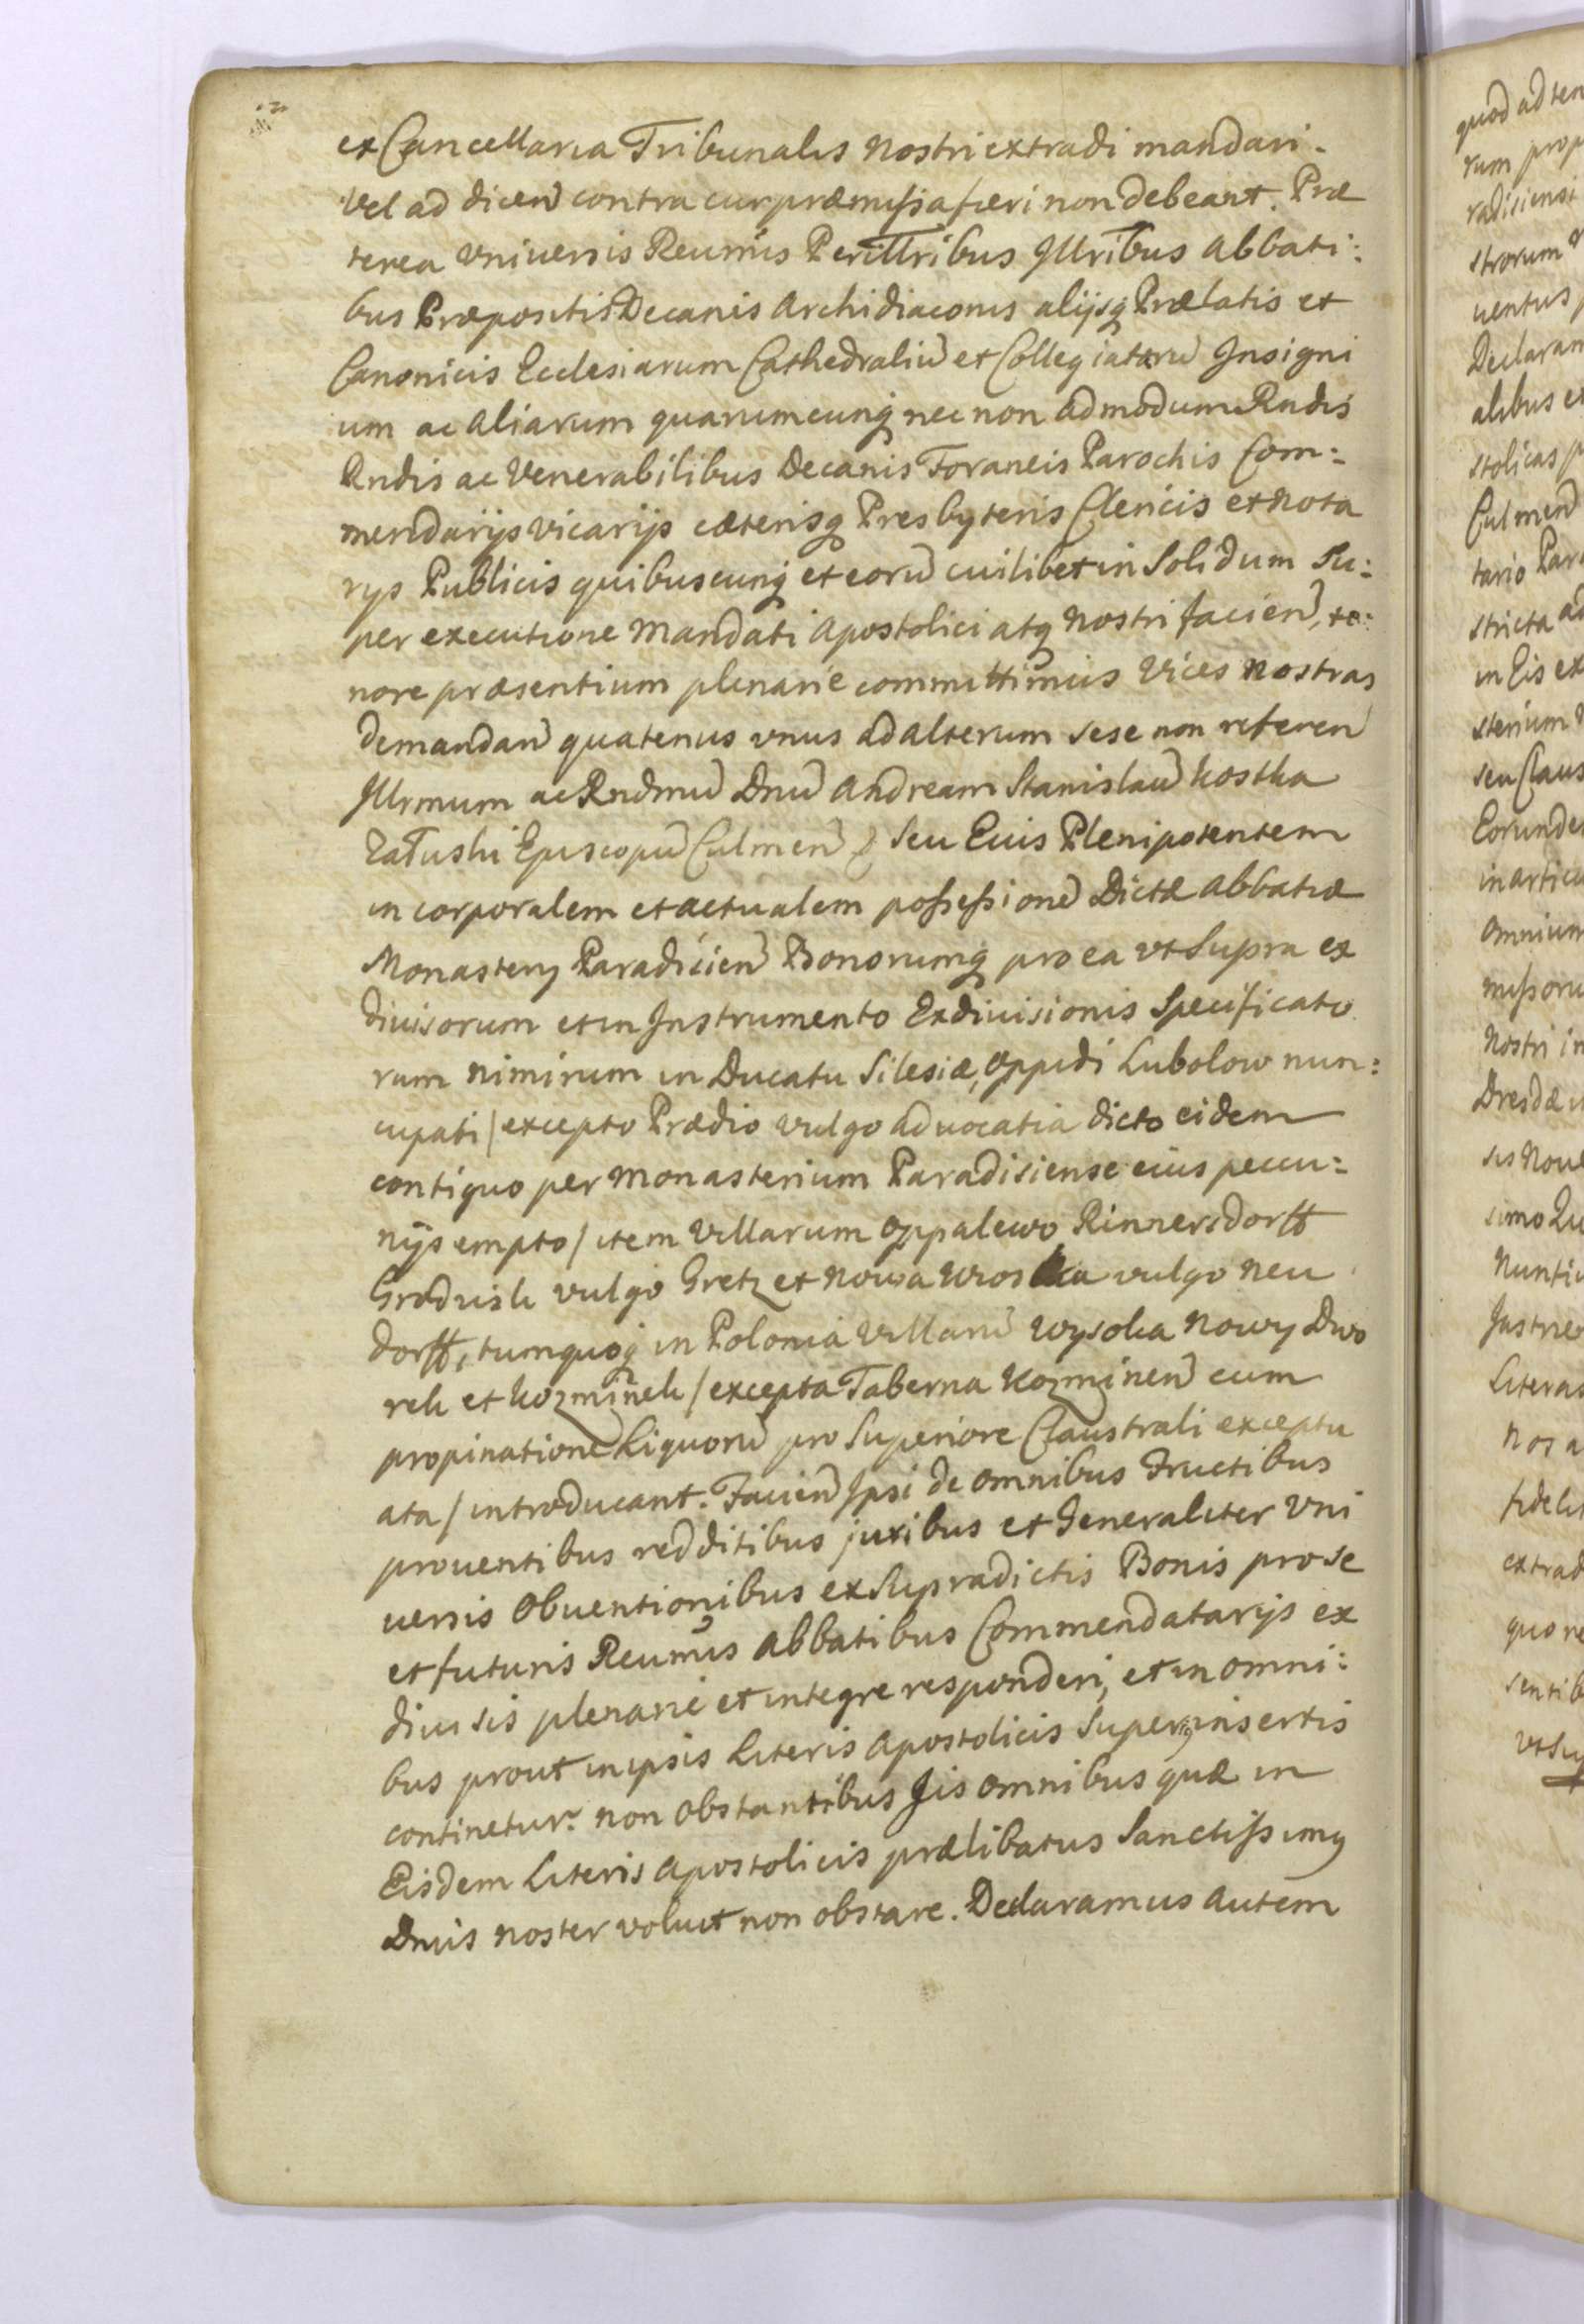 ex Cancellaria Tribunalis Nostri extradi mandari.
Vel ad dicen̄ contra cur præmissa fieri non debeant. Præ
terea Vniuersis Reumis Perillribus Illribus Abbati:
bus Præpositis Decanis Archidiaconis alijsq Prælatis et
Canonicis Ecclesiarum Cathedraliū et Collegiatarū Insigni
um ac Aliarum quarumcunq nec non Admodum Rndis
Rndis ac Venerabilibus Decanis Foraneis Parochis Com:
mendarijs Vicarijs cæterisq Presbyteris Clericis et Nota
rijs Publicis quibuscunq et eorū cuilibet in Solidum Su:
per executione Mandati Apostolici atq Nostri facien̄, te:
nore præsentium plenarie committimus Vices Nostras
demandan̄ quatenus vnus ad alterum sese non referen̄
Illrmum ac Rndmū Dnū Andream Stanislaū Kostka
Załuski Episcopū Culmen̄ seu Eius Plenipotentem
in corporalem et actualem possessionē Dictæ Abbatiæ
Monastery Paradisien̄ Bonorumq pro ea vt Supra ex
diuisorum et in Instrumento Exdiuisionis Specificato
rum nimirum in Ducatu Silesiæ, Oppidi Lubolow nun:
cupati / excepto Prædio vulgo Aduocatia dicto eidem
contiguo per Monasterium Paradisiense eius pecu:
nijs empto / item Villarum Oppalewo Rinnersdorff
Grodzisk vulgo Gretz et Nowa Wioska vulgo Neu
dorff, tum quoq in Polonia Villarū Wysoka Nowy Dwo
rek et Kozminek / excepta Taberna Kozminen̄ cum
propinatione Liquorū pro Superiore Claustrali exceptu
ata / introducant. Facien̄ Ipsi de omnibus Fructibus
prouentibus redditibus juribus et Generaliter Vni
uersis Obuentionibus ex Supradictis Bonis pro se
et futuris Reumis Abbatibus Commendatarijs ex
diuisis plenarie et integre responderi, et in omni:
bus prout in ipsis Literis Apostolicis Superius insertis
continetur. Non Obstantibus Iis omnibus quæ in
Eisdem Literis Apostolicis prælibatus Sanctissimq
Dnus Noster voluit non obstare. Declaramus Autem
quod ad ten
rum prop
radisiensi
strorum
uentus
Declaram
alibus et
stolicas p
Culmen̄
tario Par
stricta ad
in Eis ex
sterium
seu Claus
Eorunde
in artic
Omnium
missoru
Nostri in
Dresdæ
sis Noue
simo Qu
Nuntiu
Literas
Nos a
fideli
extrad
quo re
sentib
vt Sup